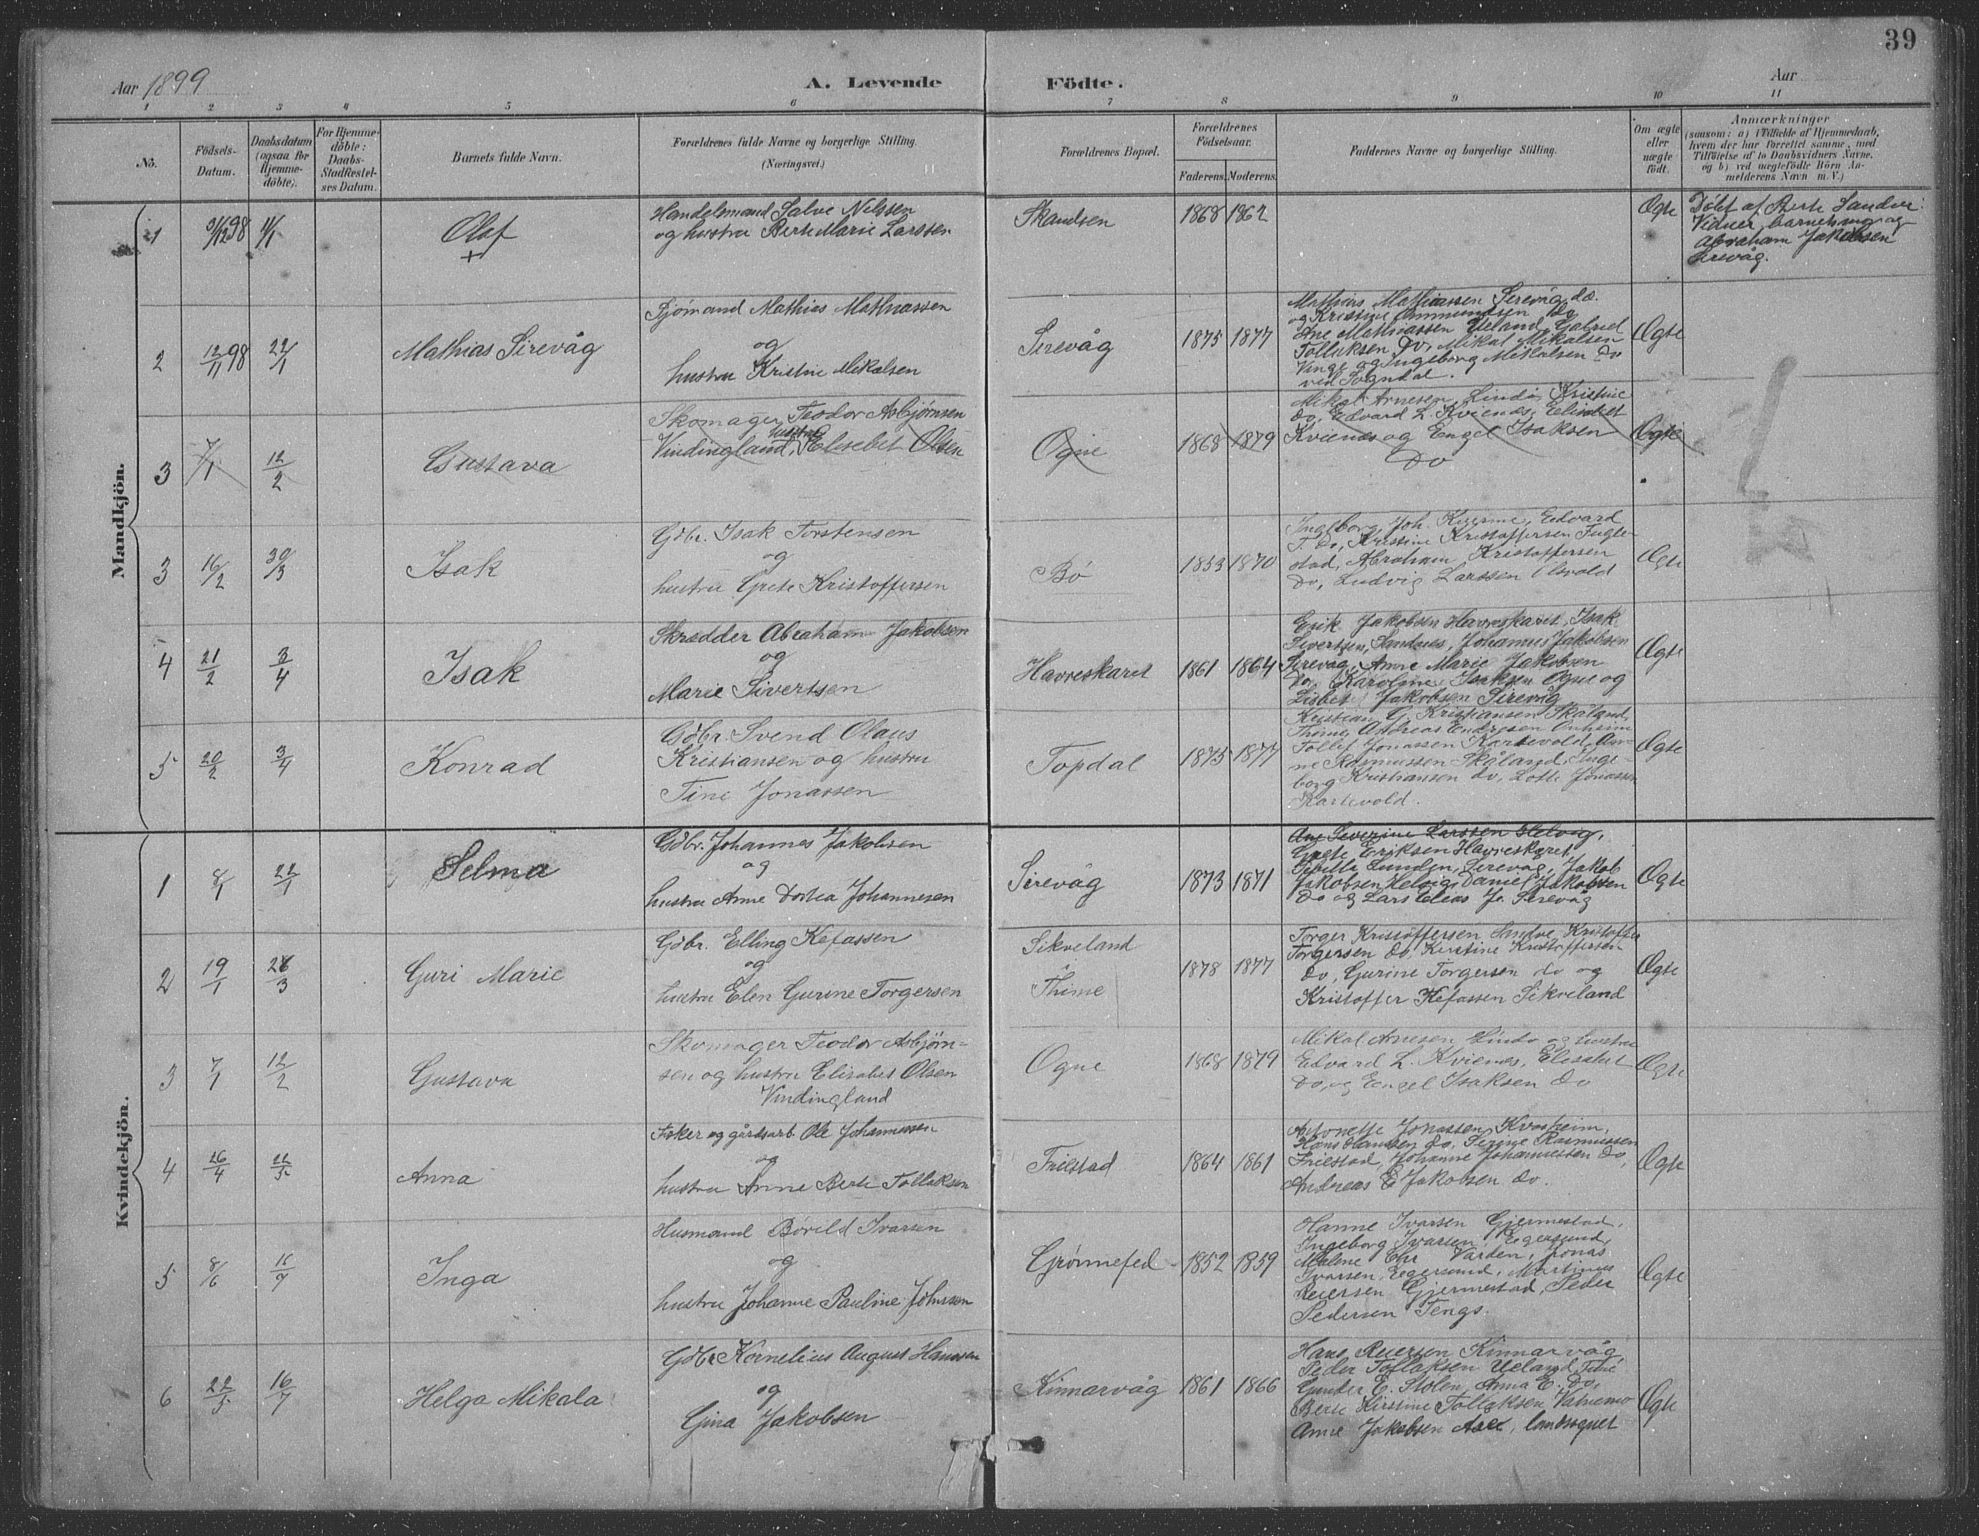 39
Aar 1899
A. Levende Födte.
Aar
1 2 3 4 5 6 7 8 9 10 11
No.
Födsels-Datum.
Daabsdatum (ogsaa for Hjemme-döbte).
For Hjemme-döbte: Daabs-Stadfæstel-ses Datum.
Barnets fulde Navn.
Forældrenes fulde Navne og borgerlige Stilling. (Næringsvei.)
Forældrenes Bopæl.
Forældrenes Födselsaar.
Faderens. Moderens.
Faddernes Navne og borgerlige Stilling.
Om ægte eller uægte født.
Anmærkninger
(saasom: a) i Tilfælde af Hjemmedaab, hvem der har forrettet samme, med Tilföielse af to Daabsvidners Navne, og b) ved uægtefödte Börn An-melderens Navn m. V.)
Mandkjön.
1 31/12 98 11/1 Olaf +
Handelsmand Salve Nilssen
og hustru Berte Marie Larssen
Skandsen 1868 1862 Ægte
Döbt af Berte Sandve:
Vidner, barnets mor og
Abraham Jakobsen
Sirevåg.
2 12/11 98 22/1 Mathias Sirevåg
Sjømand Mathias Mathiassen
og
hustru Kristine Mikalsen
Sirevåg 1875 1877
Mathias Mathiassen Sirevåg, do.
og Kristine Ommundsen Do
Ane Mathiassen Ueland, Gabriel
Tollaksen Do, Mikal Mikalsen
Vinge og Ingeborg Mikalsen Do
ved Sogndal.
Ægte
3 7/1 12/2 Gustava
Skomager Teodor Asbjørnsen
Vindingland, hustru Elisebet Olsen
Ogne 1868 1879
Mikal Arnesen, Lindø, Kristine
Do, Edvard L. Kvienes, Elisabet
Kvienes og Engel Isaksen
Do
Ægte
3 16/2 30/3 Isak
Gdbr. Isak Torstensen
og
hustru Grete Kristoffersen
Bö 1853 1870
Ingeborg, Joh. Kvierne, Edvard
T. Do, Kristine Kristoffersen Fugle-
stad, Abraham Kristoffersen
Do, Ludvig Larssen
Ægte
4 21/2 3/4 Isak
Skrædder Abraham Jakobsen
og
Marie Sivertsen
Havreskaret 1861 1864
Erik Jakobsen Havreskaret, Isak
Sivertsen, Sandnes, Johannes Jakobsen
Sirevåg, Anne Marie Jakobsen
Do, Karoline Isaksen Ogne og
Lisbet Jakobsen Sirevåg
Ægte
5 20/2 3/4 Konrad
Gdbr. Svend Olaus
Kristiansen og hustru
Tine Jonassen
Topdal 1875 1877
Kristian G. Kristiansen Skåland,
Thime, Andreas Endresen
Tollef Jonassen Kartevold, An-
ne Rasmussen Skåland, Inge-
borg Kristiansen do, Lotte Jonassen
Kartevold.
Ægte
Kvindekjön.
1 8/1 22/1 Selma
Gdbr. Johannes Jakobsen
og
hustru Anne Dortea Johannesen
Sirevåg 1873 1871
Ane Severine Larssen Helvig,
Grete Eriksen Havreskaret,
Sirevåg, Jakob
Jakobsen Helvig, Daniel Jakobsen
Do og Lars Elias J. Sirevåg
Ægte
2 19/1 26/3 Guri Marie
Gdbr. Elling Kefassen
og
hustru Elen Gurine Torgersen
Sikveland
Thime
1878 1877
Torger Kristoffersen Sandve, Kristoffer
Torgersen do, Kirstine Kristoffersen
do, Gurine Torgersen do og
Kristoffer Kefassen Sikveland
Ægte
3 7/1 12/2 Gustava
Skomager Teodor Asbjørn-
sen og hustru Elisabet Olsen
Vindingland
Ogne 1868 1879
Mikal Arnesen Lindø og hustru
Edvard L. Kvienes, Elisabet
Do, og Engel Isaksen do
Ægte
4 26/4 22/5 Anna
Fisker og gårdsarb. Ole Johannessen
og
hustru Anne Berte Tollaksen
Friestad 1864 1861
Antonette Jonassen Kvasheim,
Hans Hansen do, Serine Rasmussen
Friestad, Johanne Johannessen do,
Andreas E. Jakobsen do.
Ægte
5 8/6 16/7 Inga
Husmand Bovild Ivarsen
og
hustru Johanne Pauline Johnssen
Grønnefed 1852 1859
Hanne Ivarsen Gjermestad,
Ingeborg Ivarsen, Egersund,
Malene Chr. Varden, Jonas
Ivarsen, Egersund, Martinus
Reiersen Gjermestad, Peder
Pedersen Tengs.
Ægte
6 22/5 16/7 Helga Mikala
Gdbr. Kornelius August Hanssen
og
Gina Jakobsen
Kinnarvåg 1861 1866
Hans Reiersen Kinnarvåg
Peder Tollaksen Ueland,
Gunder E. Stolen, Anna E. Do,
Berte Kirstine Tollaksen
Anne Jakobsen Aase, landsognet
Ægte